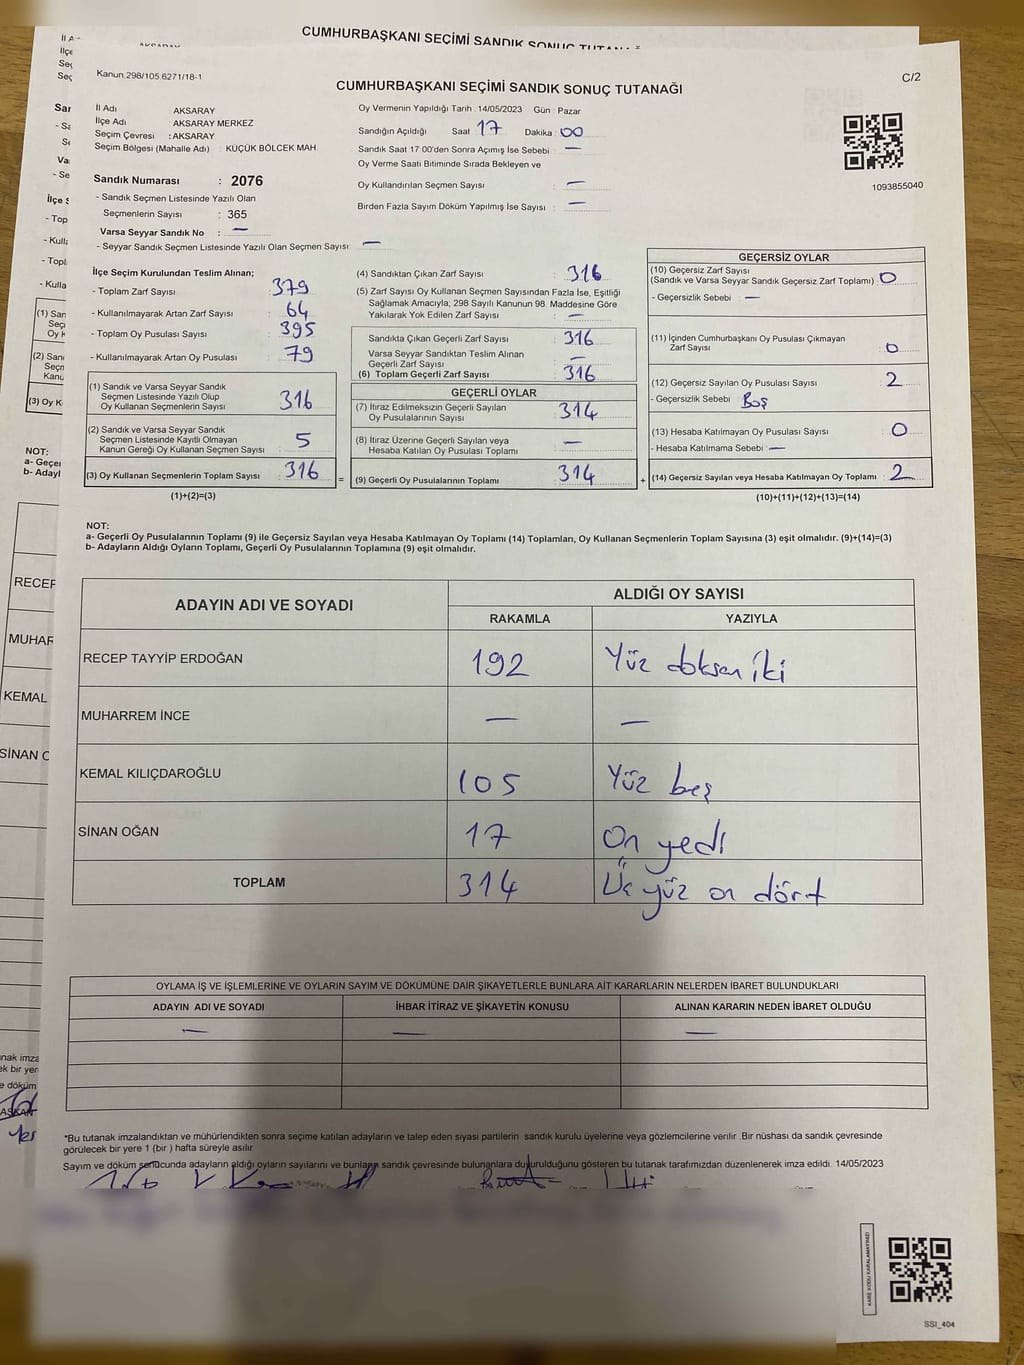 CUMHURBAŞKANI SEÇİMİ SANDIK SONUÇ TUTANA
Kanun 298/105 6271/18-1
CUMHURBAŞKANI SEÇİMİ SANDIK SONUÇ TUTANAĞI
C/2
İl Adı AKSARAY
İlçe Adı AKSARAY MERKEZ
Seçim Çevresi : AKSARAY
Seçim Bölgesi (Mahalle Adı) : KÜÇÜK BÖLCEK MAH.
Sandık Numarası : 2076
- Sandık Seçmen Listesinde Yazılı Olan
Seçmenlerin Sayısı : 365
Varsa Seyyar Sandık No : —
- Seyyar Sandık Seçmen Listesinde Yazılı Olan Seçmen Sayısı —
Oy Vermenin Yapıldığı Tarih : 14/05/2023 Gün : Pazar
Sandığın Açıldığı Saat 17 Dakika : 00
Sandık Saat 17 00'den Sonra Açımış İse Sebebi : —
Oy Verme Saati Bitiminde Sırada Bekleyen ve
Oy Kullandırılan Seçmen Sayısı : —
Birden Fazla Sayım Döküm Yapılmış İse Sayısı : —
1093855040
İlçe Seçim Kurulundan Teslim Alınan;
- Toplam Zarf Sayısı : 379
- Kullanılmayarak Artan Zarf Sayısı : 64
- Toplam Oy Pusulası Sayısı : 395
- Kullanılmayarak Artan Oy Pusulası : 79
(1) Sandık ve Varsa Seyyar Sandık
Seçmen Listesinde Yazılı Olup
Oy Kullanan Seçmenlerin Sayısı : 316
(2) Sandık ve Varsa Seyyar Sandık
Seçmen Listesinde Kayıtlı Olmayan
Kanun Gereği Oy Kullanan Seçmen Sayısı : 5
(3) Oy Kullanan Seçmenlerin Toplam Sayısı : 316
(1)+(2)=(3)
(4) Sandıktan Çıkan Zarf Sayısı : 316
(5) Zarf Sayısı Oy Kullanan Seçmen Sayısından Fazla İse, Eşitliği
Sağlamak Amacıyla, 298 Sayılı Kanunun 98. Maddesine Göre
Yakılarak Yok Edilen Zarf Sayısı : —
Sandıkta Çıkan Geçerli Zarf Sayısı : 316
Varsa Seyyar Sandıktan Teslim Alınan
Geçerli Zarf Sayısı : —
(6) Toplam Geçerli Zarf Sayısı : 316
GEÇERLİ OYLAR
(7) İtiraz Edilmeksizin Geçerli Sayılan
Oy Pusulalarının Sayısı : 314
(8) İtiraz Üzerine Geçerli Sayılan veya
Hesaba Katılan Oy Pusulası Toplamı : —
= (9) Geçerli Oy Pusulalarının Toplamı : 314 +
GEÇERSİZ OYLAR
(10) Geçersiz Zarf Sayısı
(Sandık ve Varsa Seyyar Sandık Geçersiz Zarf Toplamı) : 0
- Geçersizlik Sebebi : —
(11) İçinden Cumhurbaşkanı Oy Pusulası Çıkmayan
Zarf Sayısı : 0
(12) Geçersiz Sayılan Oy Pusulası Sayısı : 2
- Geçersizlik Sebebi : Boş
(13) Hesaba Katılmayan Oy Pusulası Sayısı : 0
- Hesaba Katılmama Sebebi : —
(14) Geçersiz Sayılan veya Hesaba Katılmayan Oy Toplamı : 2
(10)+(11)+(12)+(13)=(14)
NOT:
a- Geçerli Oy Pusulalarının Toplamı (9) ile Geçersiz Sayılan veya Hesaba Katılmayan Oy Toplamı (14) Toplamları, Oy Kullanan Seçmenlerin Toplam Sayısına (3) eşit olmalıdır. (9)+(14)=(3)
b- Adayların Aldığı Oyların Toplamı, Geçerli Oy Pusulalarının Toplamına (9) eşit olmalıdır.
ADAYIN ADI VE SOYADI ALDIĞI OY SAYISI
RAKAMLA YAZIYLA
RECEP TAYYİP ERDOĞAN 192 Yüz doksan iki
MUHARREM İNCE — —
KEMAL KILIÇDAROĞLU 105 Yüz beş
SİNAN OĞAN 17 On yedi
TOPLAM 314 Üç yüz on dört
OYLAMA İŞ VE İŞLEMLERİNE VE OYLARIN SAYIM VE DÖKÜMÜNE DAİR ŞİKAYETLERLE BUNLARA AİT KARARLARIN NELERDEN İBARET BULUNDUKLARI
ADAYIN ADI VE SOYADI İHBAR İTİRAZ VE ŞİKAYETİN KONUSU ALINAN KARARIN NEDEN İBARET OLDUĞU
— — —
*Bu tutanak imzalandıktan ve mühürlendikten sonra seçime katılan adayların ve talep eden siyasi partilerin sandık kurulu üyelerine veya gözlemcilerine verilir. Bir nüshası da sandık çevresinde
görülecek bir yere 1 (bir ) hafta süreyle asılır.
Sayım ve döküm sonucunda adayların aldığı oyların sayılarını ve bunların sandık çevresinde bulunanlara duyurulduğunu gösteren bu tutanak tarafımızdan düzenlenerek imza edildi. 14/05/2023
KARE KODU KARALAMAYINIZ!
SSI_404